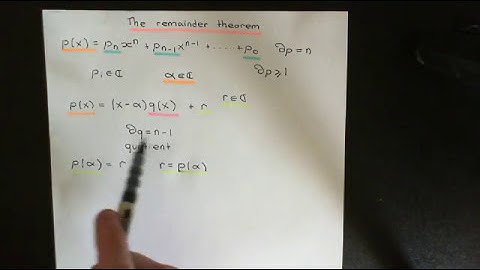 The remainder theorem
p(x) = pₙxⁿ + pₙ₋₁xⁿ⁻¹ + ..... + p₀ ∂p = n
pᵢ ∈ ℂ α ∈ ℂ ∂p ⩾ 1
p(x) = (x-α) q(x) + r r ∈ ℂ
∂q = n-1
p(α) = r r = p(α)